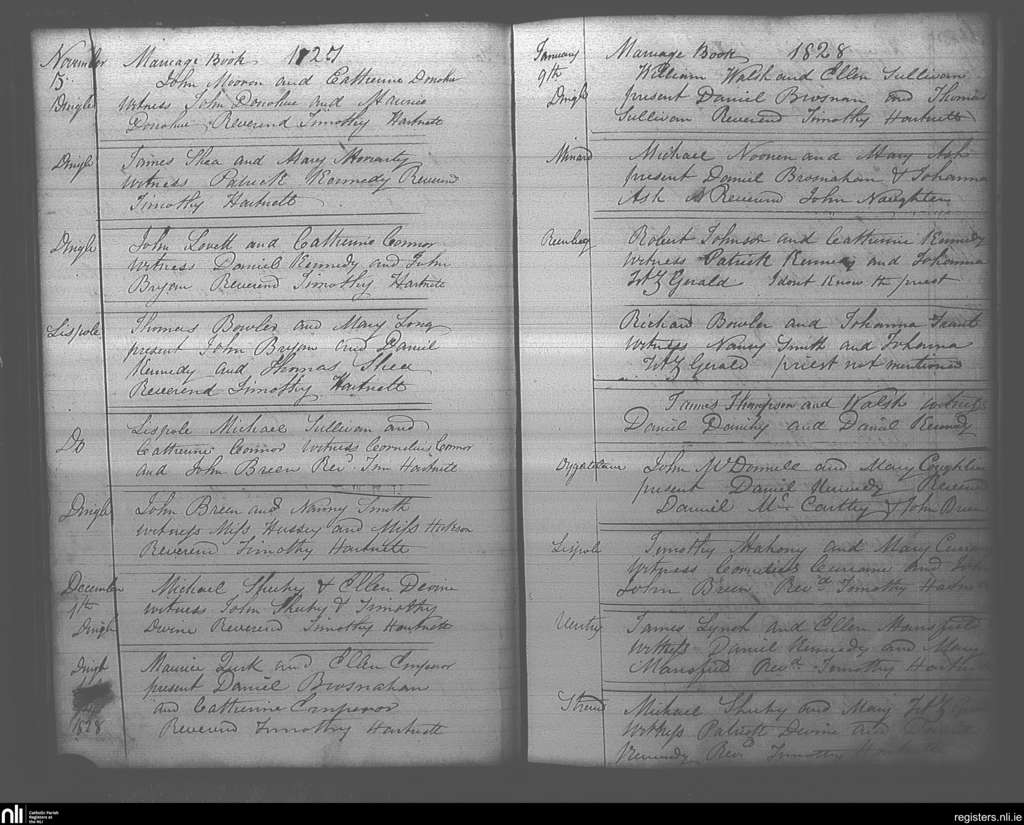 November Marriage Book 1827
13 John Moonon and Catherine Donohue
Dingle witness John Donohue and Maurice
Donohue Reverend Timothy Hartnett
Dingle James Shea and Mary Moriarty
witness Patrick Kennedy Reverend
Timothy Hartnett
Dingle John Lovett and Catherine Connor
witness Daniel Kennedy and John
Bryan Reverend Timothy Hartnett
Lispole Thomas Bowler and Mary Long
present John Bryan and Daniel
Kennedy and Thomas Shea
Reverend Timothy Hartnett
Do Lispole Michael Sullivan and
Catherine Connor witness Cornelius Connor
and John Breen Revd Tim Hartnett
Dingle John Breen and Nanny Smith
witness Miss Hussey and Miss Hickson
Reverend Timothy Hartnett
December Michael Sheehy & Ellen Devine
9th witness John Sheehy & Timothy
Dingle Devine Reverend Timothy Hartnett
Dingle Maurice Quirk and Ellen Emperor
present Daniel Brosnahan
and Catherine Emperor
1828 Reverend Timothy Hartnett
January Marriage Book 1828
9th William Walsh and Ellen Sullivan
Dingle present Daniel Brosnan and Thomas
Sullivan Reverend Timothy Hartnett
Minard Michael Noonen and Mary Ash
present Daniel Brosnahan & Johanna
Ash Reverend John Naughten
Robert Johnson and Catherine Kennedy
witness Patrick Kennedy and Johanna
FitzGerald I dont know the priest
Richard Bowler and Johanna Grant
witness Nancy Smith and Johanna
FitzGerald priest not mentioned
James Thompson and Walsh witness
Daniel and Daniel Kennedy
John McDonnell and Mary Coughlin
present Daniel Kennedy Reverend
Daniel McCarthy & John Breen
Lispole Timothy Mahony and Mary Curran
witness Cornelius Currane and John
John Breen Revd Timothy Hartnett
Ventry James Lynch and Ellen Mansfield
witness Daniel Kennedy and Mary
Mansfield Revd Timothy Hartnett
Strand Michael Sheehy and Mary FitzGerald
witness Patrick Devine and
Kennedy Revd Timothy
nli Catholic Parish
Registers at
the NLI
registers.nli.ie